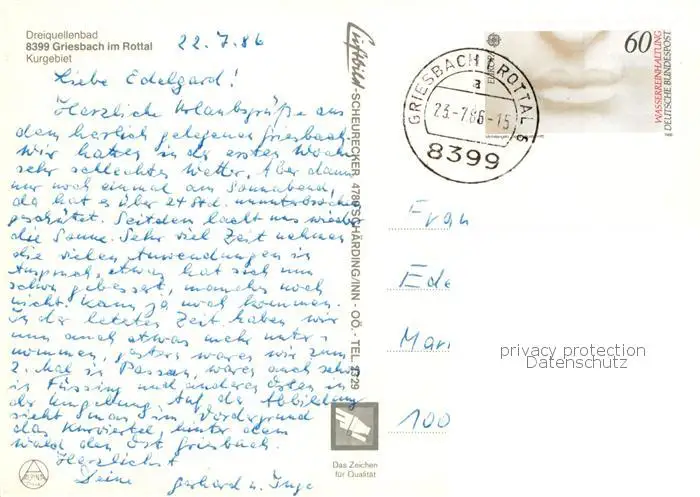 Dreiquellenbad
8399 Griesbach im Rottal
Kurgebiet
22.7.86
Liebe Edelgard!
Herzliche Urlaubsgrüße aus
dem herrlich gelegenen Griesbach.
Wir hatten in der ersten Woche
sehr schlechtes Wetter. Aber dann
nur noch einmal am Sonnabend,
da hat es über 24 Std. ununterbrochen
geschüttet. Seitdem lacht uns wieder
die Sonne. Sehr viel Zeit nehmen
die vielen Anwendungen in
Anspruch, etwas hat sich nun
schon gebessert, manches noch
nicht. Kann ja noch kommen.
In der letzten Zeit haben wir
nun auch etwas mehr unter-
nommen, gestern waren wir zum
2. Mal in Passau, waren auch schon
in Füssing und anderen Orten in
der Umgebung. Auf der Abbildung
sieht man im Vordergrund
das Kurviertel, hinter dem
Wald den Ort Griesbach.
Herzlichst
Deine Gerhard u. Inge
Luftbild-SCHEURECKER 4780 SCHÄRDING/INN - OÖ. - TEL.
Das Zeichen
für Qualität
ALPINA
GRIESBACH I ROTTAL
a
23.-7.86-15
8399
EUROPA
60
WASSERREINHALTUNG
DEUTSCHE BUNDESPOST
Frau
Ede
Mari
100
privacy protection
Datenschutz